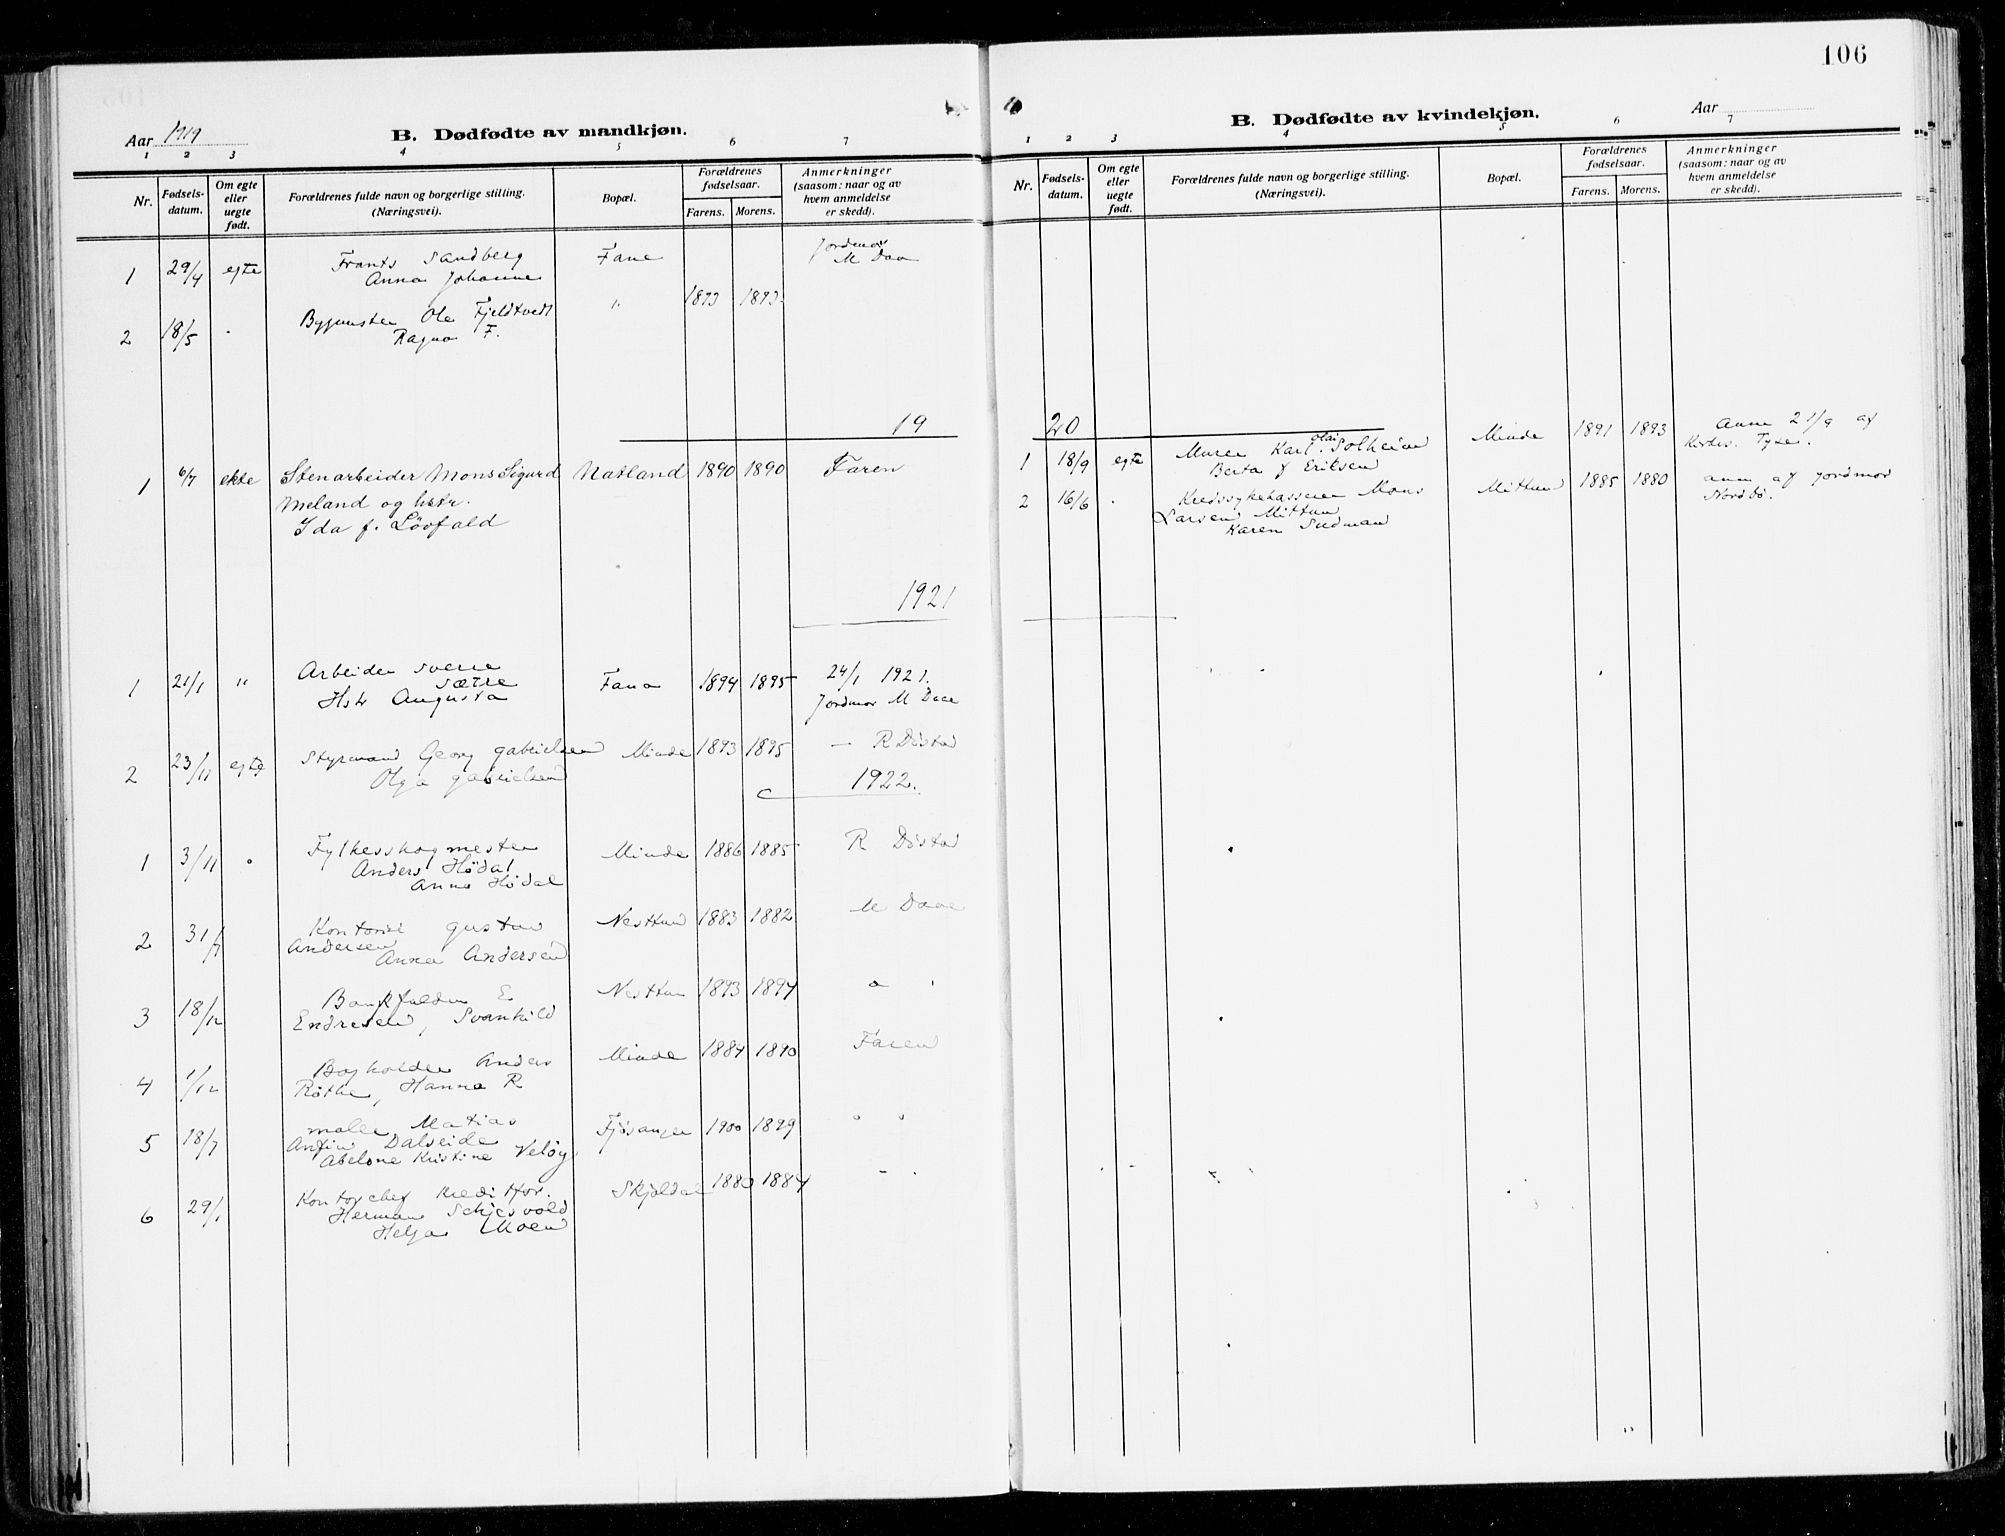 106
Aar 1919
B. Dødfødte av mandkjøn.
1 2 3 4 5 6 7
Nr.
Fødsels-
datum.
Om egte
eller
uegte
født.
Forældrenes fulde navn og borgerlige stilling.
(Næringsvei).
Bopæl.
Forældrenes
fødselsaar.
Farens. Morens.
Anmerkninger
(saasom: naar og av
hvem anmeldelse
er skedd).
1 29/4 egte Frants Sandberg Fane Jordmor
Anna Johanne M Daa
2 18/5 Ole Fjeldtvedt " 1893 1893
Ragna F.
19
1 6/7 ekte Stenarbeider Mons Sigurd Natland 1890 1890 Faren
Meland og hstr.
Ida f. Løvfald
1921
1 21/1 " Arbeider Sverre Fana 1894 1895 24/1 1921.
Sætre
Hstr Augusta Jordmor M Daae
2 23/11 egte Styrmand Georg Gabrielsen Minde 1893 1895 — R Distad
Olga Gabrielsen
1922.
1 3/11 Fylkesskogmester Minde 1886 1885 R Distad
Anders Hødal
Anna Hødal
2 31/7 Kontorist Gustav Nesttun 1883 1882 M Daae
Andersen
Anna Andersen
3 18/12 E Nesttun 1893 1894 " "
Endresen, Svanhild
4 1/12 Bogholder Anders Minde 1884 1890 Faren
Røthe, Hanna R
5 18/7 maler Matias Fjøsanger 1900 1899 " "
Dalseide
Abelone Kristine Veløy
6 29/1 Kontorchef Kreditfor. Skjoldal 1880 1884 - "
Herman
Helga Moen
B. Dødfødte av kvindekjøn.
Aar
1 2 3 4 5 6 7
Nr.
Fødsels-
datum.
Om egte
eller
uegte
født.
Forældrenes fulde navn og borgerlige stilling.
(Næringsvei).
Bopæl.
Forældrenes
fødselsaar.
Farens. Morens.
Anmerkninger
(saasom: naar og av
hvem anmeldelse
er skedd).
20
1 18/9 egte Murer Karl Olai Solheim Minde 1891 1893 Anm 21/9 af
Berta f Eriksen
2 16/6 " Kredssykekasserer Mons Mittun 1885 1880 anm af Jordmor
Larsen Mittun Nordbø.
Karen Sudman